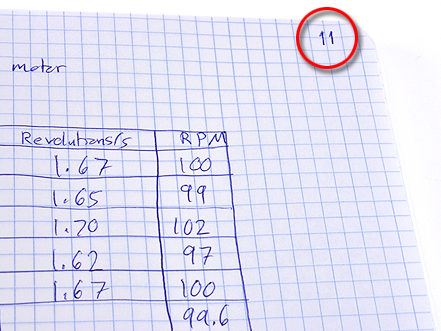 11
motor
Revolutions/s RPM
1.67 100
1.65 99
1.70 102
1.62 97
1.67 100
99.6